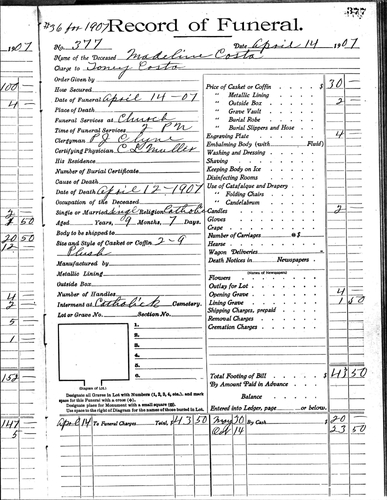 #36 for 1907 Record of Funeral. 377
1907
No. 377 Date April 14 1907
Name of the Deceased Madeline Costa
Charge to Toney Costa
Order Given by
How Secured
Date of Funeral April 14-07
Place of Death
Funeral Services at Church
Time of Funeral Services 2 PM
Clergyman P J Clyne
Certifying Physician C L Mueller
His Residence
Number of Burial Certificate
Cause of Death
Date of Death April 12-1907
Occupation of the Deceased
Single or Married Single Religion Catholic
Aged Years, 9 Months, 7 Days.
Body to be shipped to
Size and Style of Casket or Coffin 2-9
Plush
Manufactured by
Metallic Lining
Outside Box
Number of Handles
Interment at Catholick Cemetery.
Lot or Grave No. Section No.
1.
2.
3.
4.
5.
6.
(Diagram of Lot.)
Designate all Graves in Lot with Numbers (1, 2, 3, 4, etc.), and mark
space for this Funeral with a cross (×).
Designate place for Monument with a small square (□).
Use space to the right of Diagram for the names of those buried in Lot.
Apr 14 To Funeral Charges Total, $ 43 50
Price of Casket or Coffin $ 30 —
" Metallic Lining
" Outside Box 2
" Grave Vault
" Burial Robe
" Burial Slippers and Hose
Engraving Plate 4
Embalming Body (with Fluid)
Washing and Dressing
Shaving
Keeping Body on Ice
Disinfecting Rooms
Use of Catafalque and Drapery
" Folding Chairs
" Candelabrum
Candles 2
Gloves
Crape
Number of Carriages @ $
Hearse
Wagon Deliveries
Death Notices in Newspapers
(Names of Newspapers)
Flowers
Outlay for Lot
Opening Grave 4
Lining Grave 1 50
Shipping Charges, prepaid
Removal Charges
Cremation Charges
Total Footing of Bill $ 43 50
By Amount Paid in Advance
Balance
Entered into Ledger, page or below.
May 30 By Cash $ 20 —
Oct 14 23 50
100
4
2
1 50
20 50
12
4
2
5
1
152
147
5